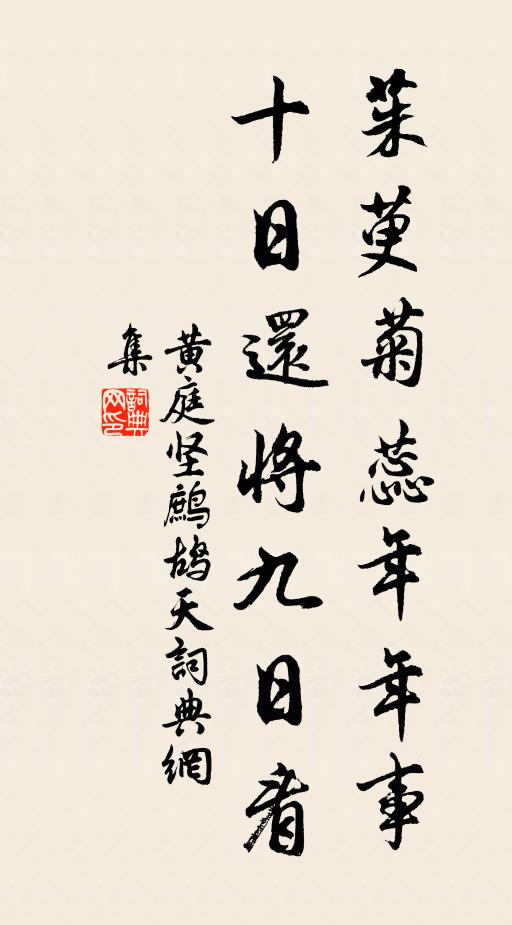 茱萸菊蕊年年事
十日還將九日看
黄庭坚鷓鴣天詞典網
集
詞典網印